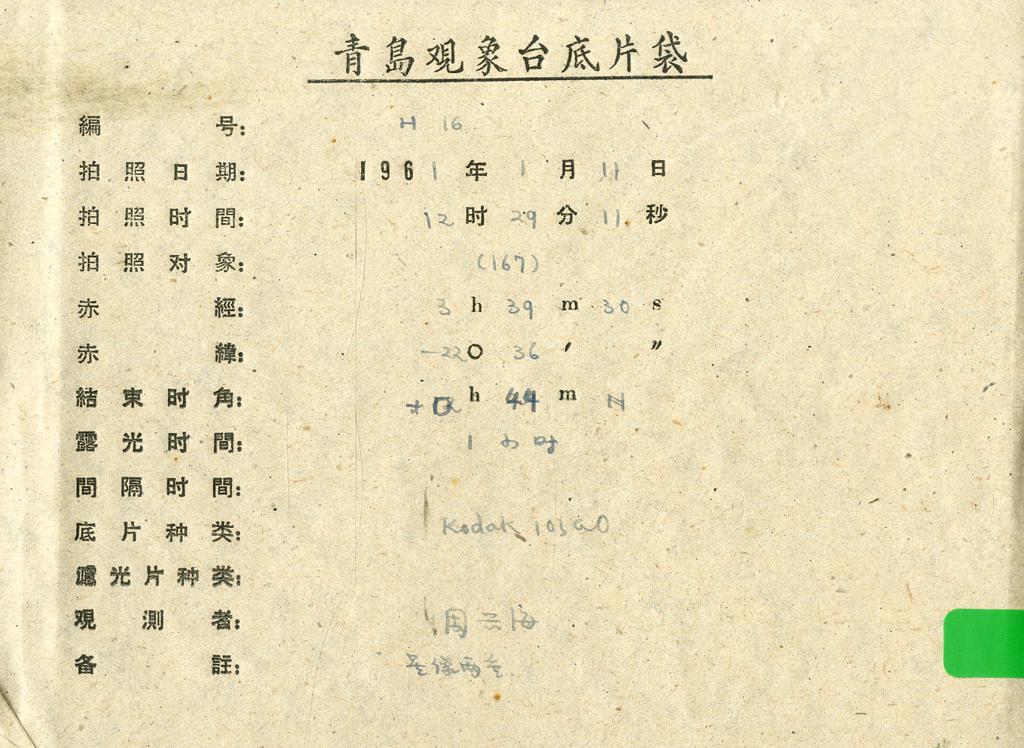 青島观象台底片袋
編号: H 16
拍照日期: 1961年1月11日
拍照时間: 12时29分11秒
拍照对象: (167)
赤經: 3h 39m 30s
赤緯: -22° 36′ ″
結束时角: + h 44m
露光时間: 1小时
間隔时間:
底片种类: Kodak 103aO
濾光片种类:
观測者: 周云海
备註: 星像两